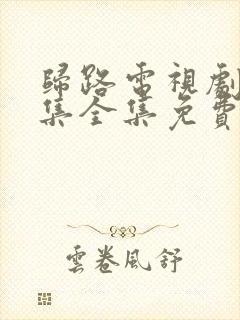 歸路電視劇
集全集免費
雲卷風舒